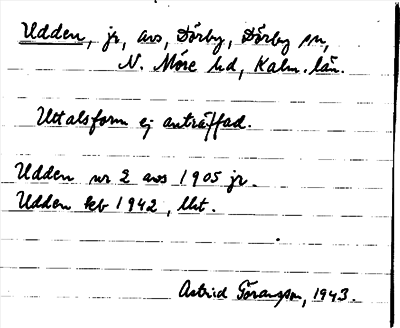 Udden, jr, avs, Dörby, Dörby sn,
N. Möre hd, Kalm. län.
Uttalsform ej anträffad.
Udden nr 2 avs 1905 jr.
Udden keb 1942, lht.
Astrid Göransson, 1943.